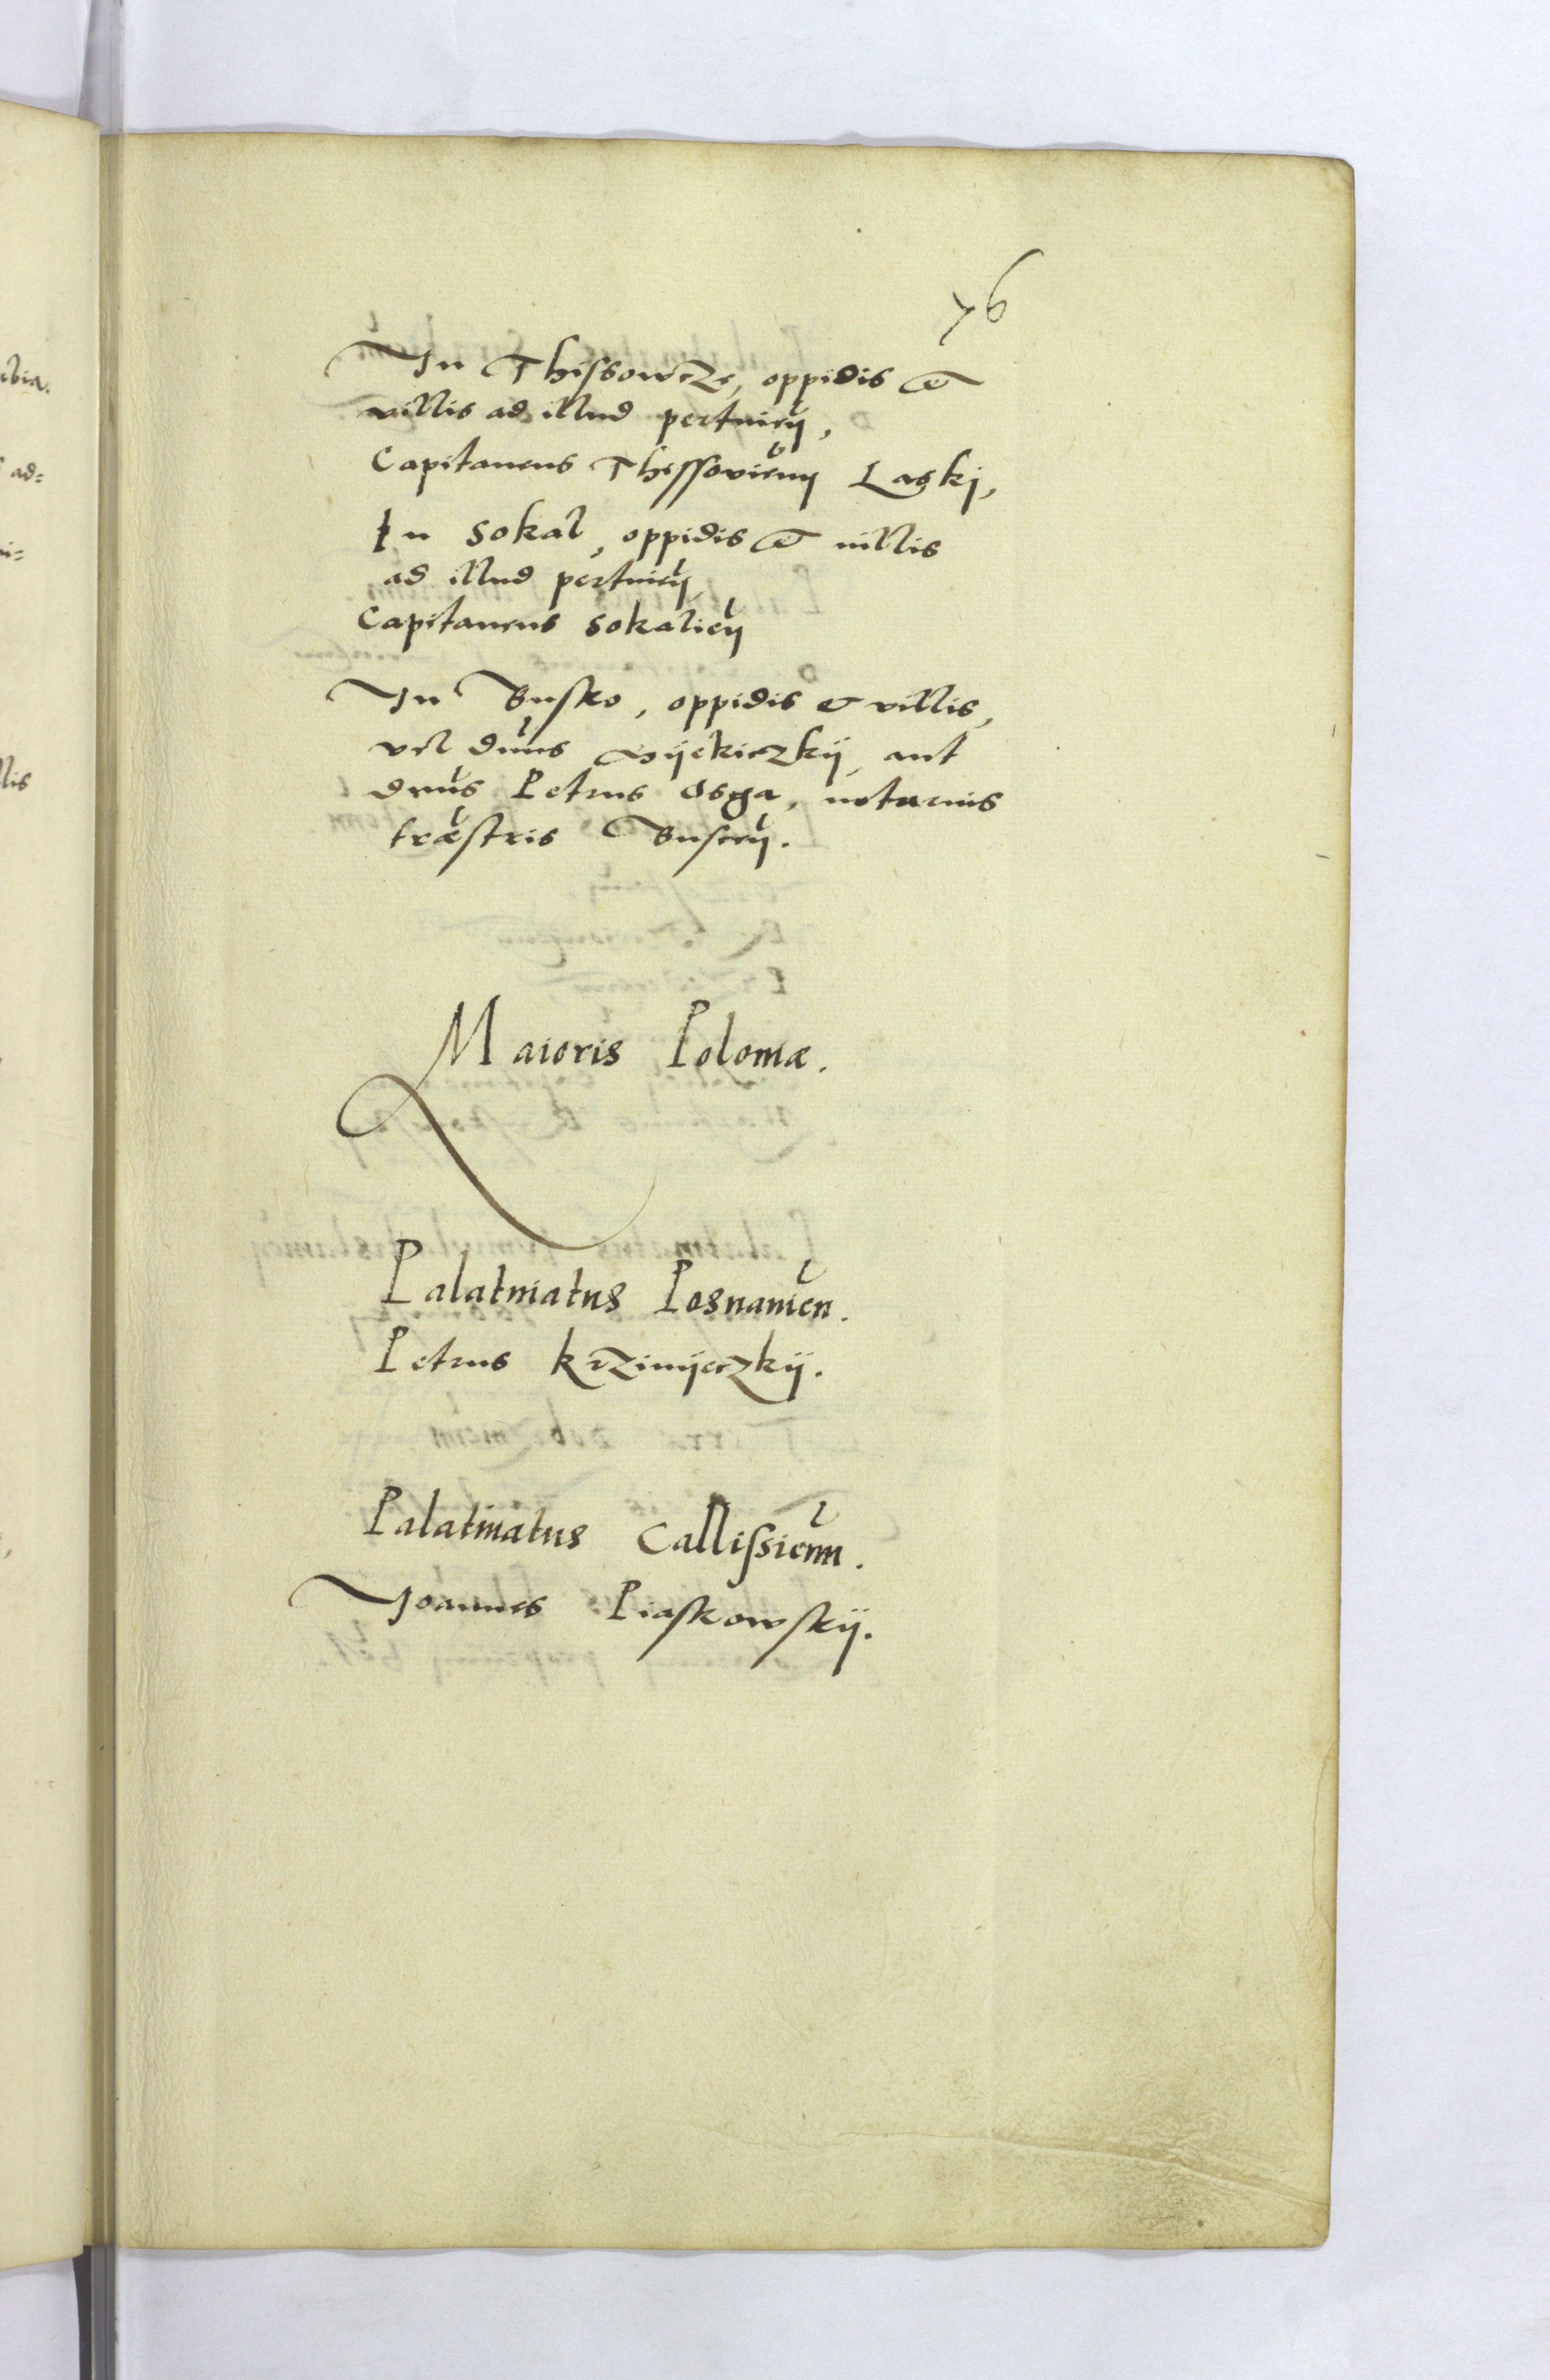 76
In Thissowcze, oppidis et
villis ad illud pertnīn,
Capitaneus Thissovien̄ Laskj,
In Sokal, oppidis et uillis
ad illud pertnīn,
Capitaneus Sokalien̄
In Busko, oppidis et villis,
vel dn̄us aut
dn̄us Petrus Osga, notarius
trr̄æstris Buscen̄.
Maioris Poloniæ.
Palatinatus Posnanien̄.
Petrus krzimijeczkij.
Palatinatus Callissienn̄.
Joannes Piaskowskij.